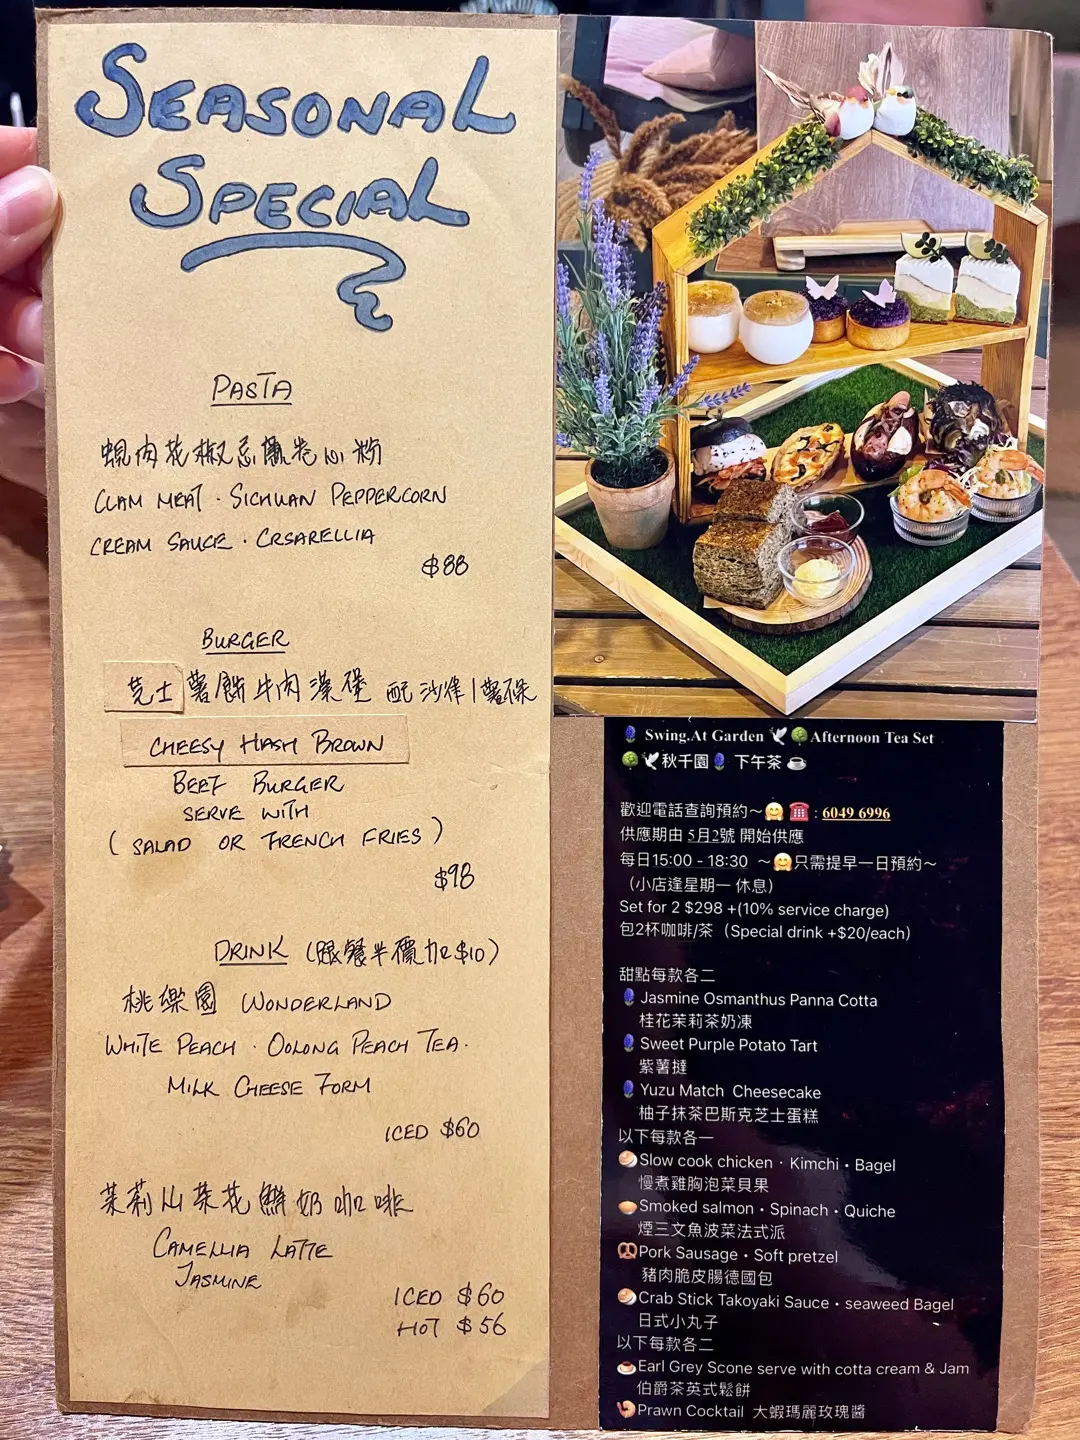 SEASONAL
SPECIAL
PASTA
蜆肉花椒忌廉卷心粉
CLAM MEAT · SICHUAN PEPPERCORN
CREAM SAUCE · CRSARELLIA
$88
BURGER
芝士薯餅牛肉漢堡 配沙律/薯條
CHEESY HASH BROWN
BEEF BURGER
SERVE WITH
( SALAD OR FRENCH FRIES )
$98
DRINK (跟餐半價/加$10)
桃樂園 WONDERLAND
WHITE PEACH · OOLONG PEACH TEA ·
MILK CHEESE FORM
ICED $60
茉莉山茶花鮮奶咖啡
CAMELLIA LATTE
JASMINE
ICED $60
HOT $56
Swing.At Garden 🕊🌳Afternoon Tea Set
🌳🕊秋千園 下午茶 ☕
歡迎電話查詢預約～🤗 ☎ : 6049 6996
供應期由 5月2號 開始供應
每日15:00 - 18:30 ～🤗只需提早一日預約～
（小店逢星期一 休息）
Set for 2 $298 +(10% service charge)
包2杯咖啡/茶（Special drink +$20/each）
甜點每款各二
Jasmine Osmanthus Panna Cotta
桂花茉莉茶奶凍
Sweet Purple Potato Tart
紫薯撻
Yuzu Match Cheesecake
柚子抹茶巴斯克芝士蛋糕
以下每款各一
Slow cook chicken · Kimchi • Bagel
慢煮雞胸泡菜貝果
Smoked salmon • Spinach • Quiche
煙三文魚波菜法式派
🥨Pork Sausage • Soft pretzel
豬肉脆皮腸德國包
Crab Stick Takoyaki Sauce • seaweed Bagel
日式小丸子
以下每款各二
☕Earl Grey Scone serve with cotta cream & Jam
伯爵茶英式鬆餅
🍤Prawn Cocktail 大蝦瑪麗玫瑰醬